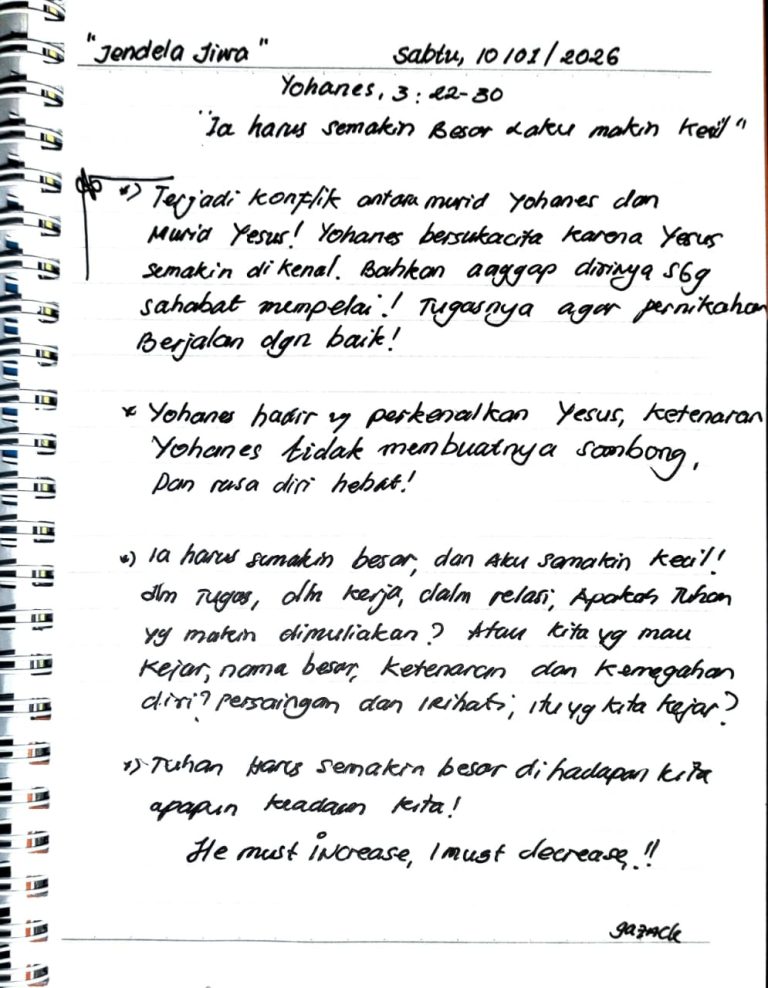 "Jendela Jiwa" Sabtu, 10/01/2026
Yohanes, 3 : 22-30
"Ia harus semakin Besar & aku makin kecil"
*) Terjadi konflik antara murid Yohanes dan
Murid Yesus! Yohanes bersukacita karena Yesus
semakin dikenal. Bahkan anggap dirinya sbg
sahabat mempelai! Tugasnya agar pernikahan
Berjalan dgn baik!
* Yohanes hadir yg perkenalkan Yesus, ketenaran
Yohanes tidak membuatnya sombong,
Dan rasa diri hebat!
*) Ia harus semakin besar, dan Aku samakin kecil!
dlm Tugas, dlm kerja, dalm relasi, Apakah Tuhan
yg makin dimuliakan? Atau kita yg mau
kejar, nama besar, ketenaran dan kemegahan
diri? Persaingan dan irihati, itu yg kita kejar?
*) Tuhan Harus semakin besar dihadapan kita
apapun keadaan kita!
He must increase, I must decrease,!!
gazack